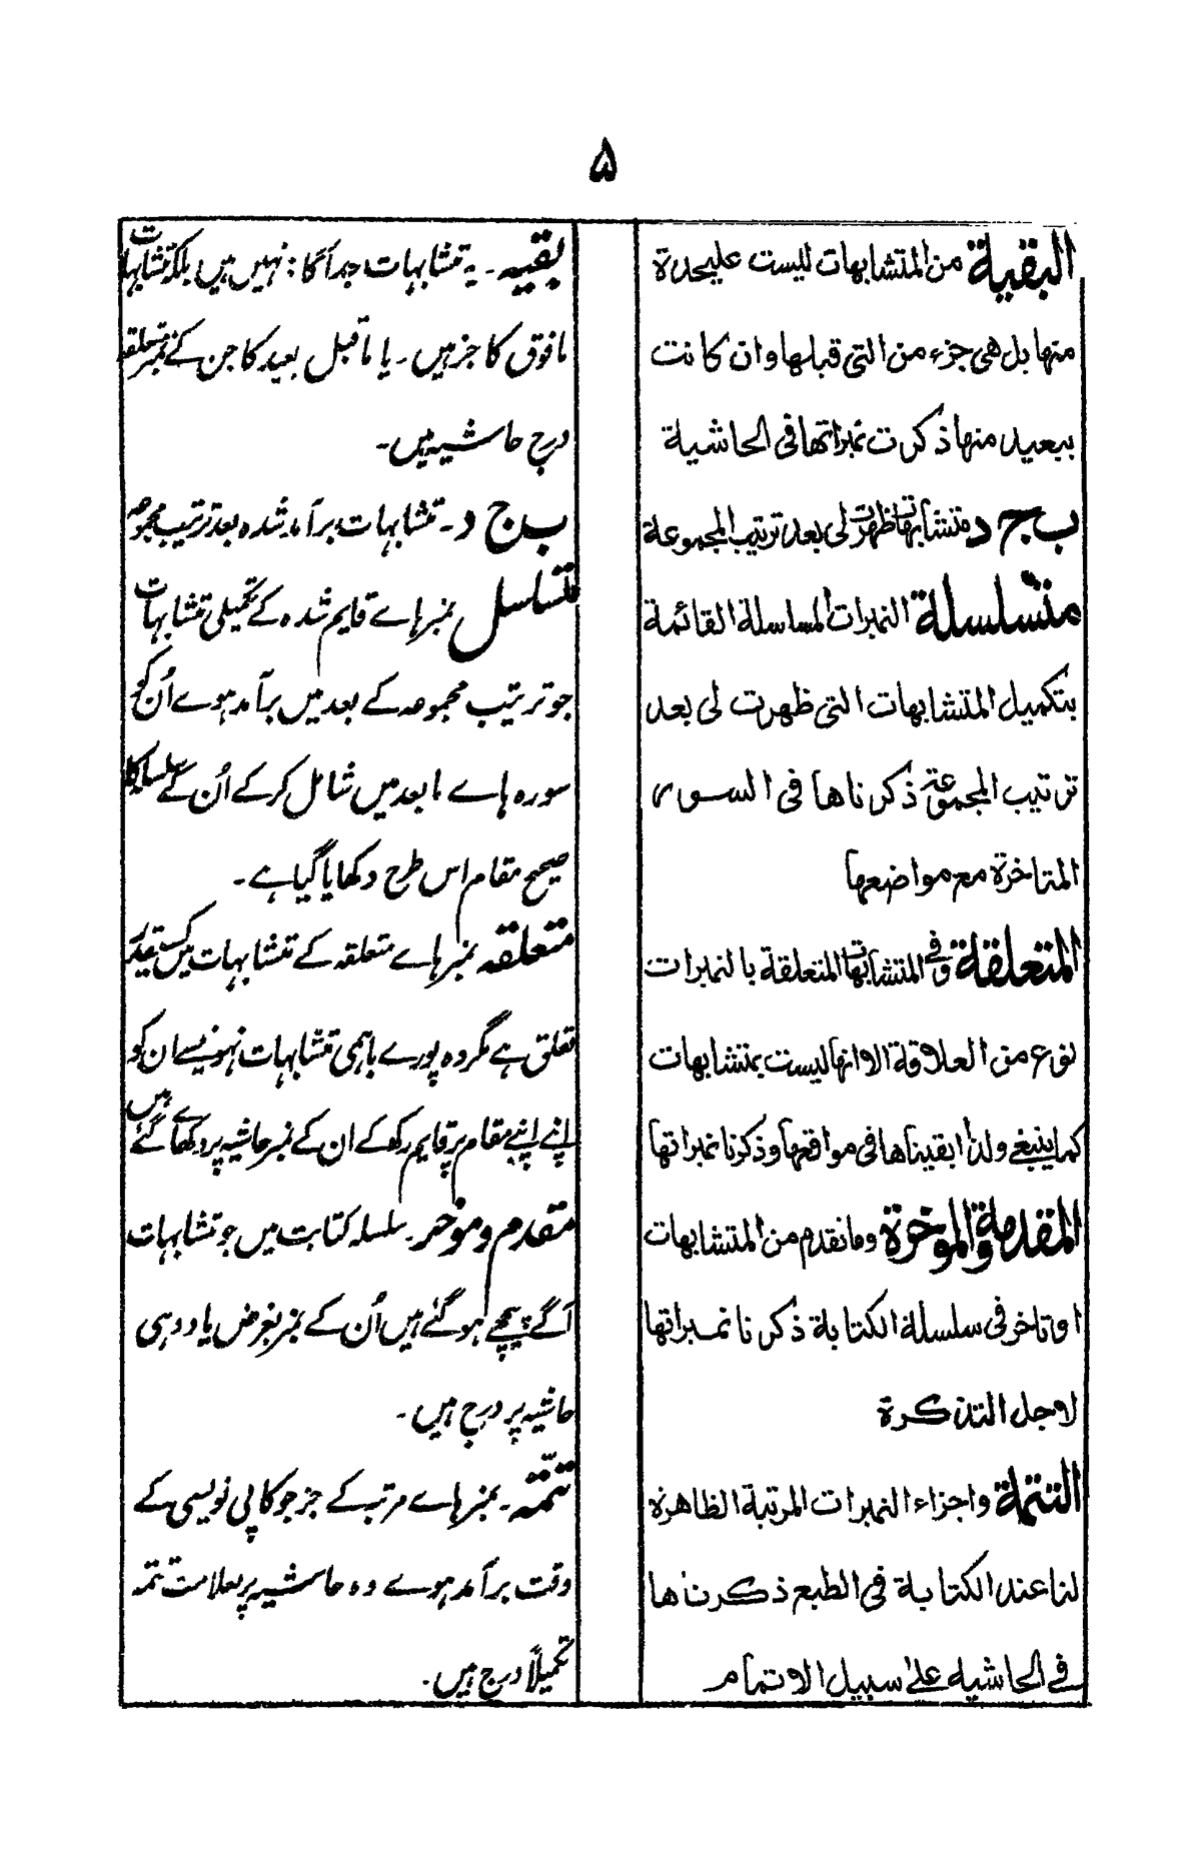 ۵
البقیة من المتشابهات لیست علیحدة
منها بل هی جزء من التی قبلها وان کانت
ببعید منها ذکرت نمبراتها فی الحاشیة
ب ج د متشابهات ظهرت لی بعد ترتیب المجموعة
متسلسلة النمبرات المسلسلة القائمة
بتکمیل المتشابهات التی ظهرت لی بعد
ترتیب المجموعة ذکرناها فی السور
المتاخرة مع مواضعها
المتعلقة وفی المتشابهات المتعلقة بالنمبرات
نوع من العلاقة الا انها لیست بمتشابهات
کما ینبغی ولذا ابقیناها فی مواقعها وذکرنا نمبراتها
المقدمة والموخرة وما تقدم من المتشابهات
او تاخر فی سلسلة الکتابة ذکرنا نمبراتها
لاجل التذکرة
التتمة واجزاء النمبرات المرتبة الظاهرة
لنا عند الکتابة فی الطبع ذکرناها
فی الحاشیه علیٰ سبیل الاتمام
بقیه ۔ یہ تشابہات جداگانہ نہیں ہیں بلکہ تشابہات
مافوق کا جز ہیں ۔ یا ماقبل بعید کا جن کے نمبر متعلقہ
درج حاشیہ ہیں ۔
ب ج د ۔ تشابہات برآمد شدہ بعد ترتیب مجموعہ
متسلسل نمبر ہاے قایم شدہ کے تکمیلی تشابہات
جو ترتیب مجموعہ کے بعد میں برآمد ہوے اُن کو
سورہ ہاے مابعد میں شامل کر کے اُن کے سلسلہ کا
صحیح مقام اس طرح دکھایا گیا ہے ۔
متعلقہ نمبر ہاے متعلقہ کے تشابہات میں کسیقدر
تعلق ہے مگر وہ پورے باہمی تشابہات نہونیسے ان کو
اپنے اپنے مقام پر قایم رکھ کے ان کے نمبر حاشیہ پر دکھاے گئے ہیں
متقدم و موخر ۔ سلسلہ کتابت میں جو تشابہات
آگے پیچھے ہو گئے ہیں اُن کے نمبر بغرض یاد دہی
حاشیہ پر درج ہیں ۔
تتمّہ ۔ نمبر ہاے مرتبہ کے جز جو کاپی نویسی کے
وقت برآمد ہوے وہ حاشیہ پر بعلامت تتمہ
تکمیلاً درج ہیں ۔